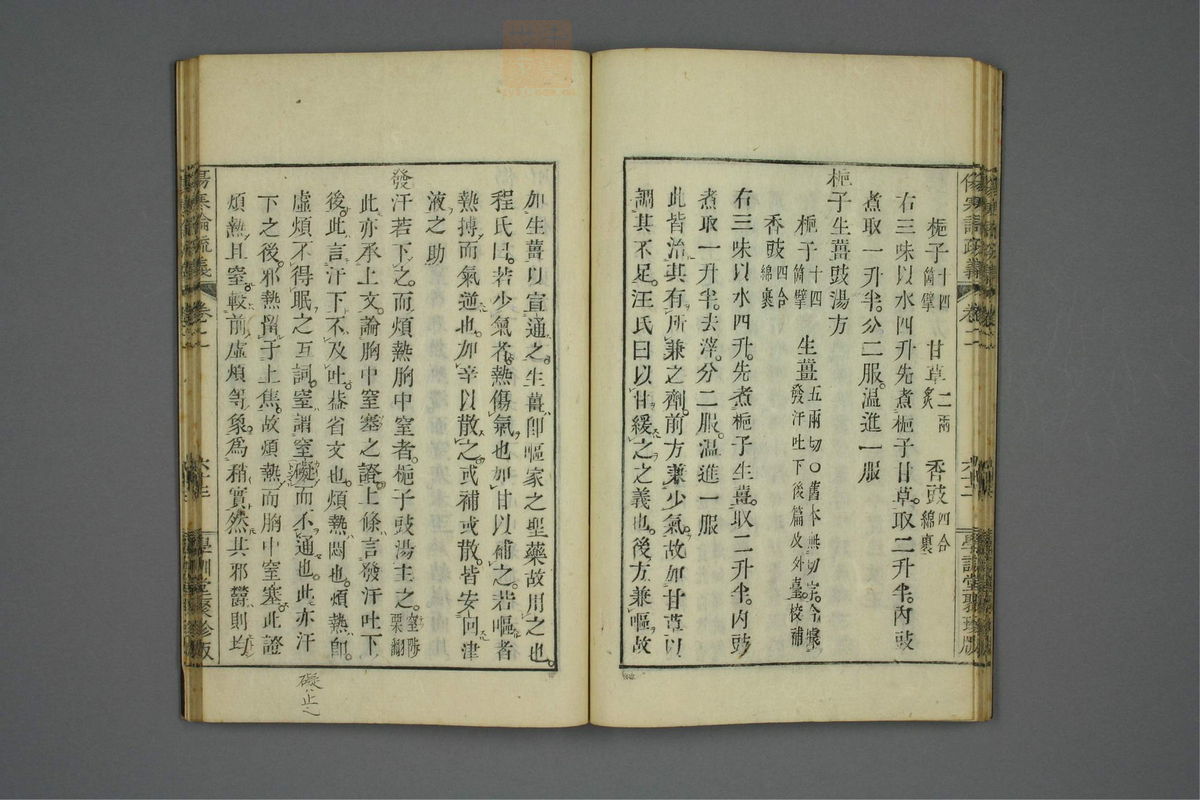 梔子十四箇擘 甘草二兩炙 香豉四合綿裹
右三味以水四升先煮梔子甘草取二升半內豉
煮取一升半分二服溫進一服
梔子生薑豉湯方
梔子十四箇擘 生薑五兩切○舊本無切字今據發汗吐下後篇及外臺校補
香豉四合綿裹
右三味以水四升先煮梔子生薑取二升半內豉
煮取一升半去滓分二服溫進一服
此皆治其有所兼之劑前方兼少氣故加甘草以
調其不足汪氏曰以甘緩之之義也後方兼嘔故
如生薑以宣通之生薑即嘔家之聖藥故用之也
程氏曰若少氣者熱傷氣也加甘以補之若嘔者
熱搏而氣逆也加辛以散之或補或散皆安回津
液之助
發汗若下之而煩熱胸中窒者梔子豉湯主之窒陟栗翻
此亦承上文論胸中窒塞之證上條言發汗吐下
後此言汗下不及吐蓋省文也煩熱悶也煩熱即
虛煩不得眠之互詞窒謂窒礙而不通也此亦汗
下之後邪熱留于上焦故煩熱而胸中窒塞此證
煩熱且窒較前虛煩等象為稍實然其邪鬱則均
礙止之
傷寒論疏義
卷二
學訓堂聚珍版